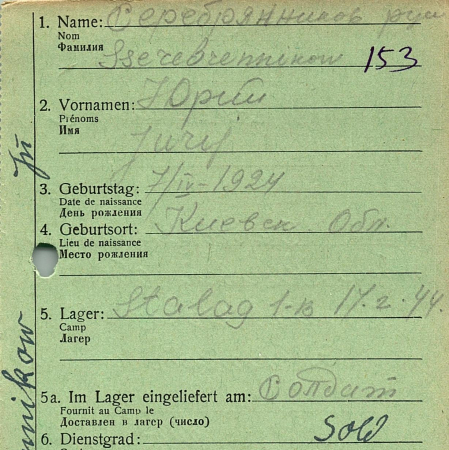 1. Name: Серебрянников рус
Nom
Фамилия
153
2. Vornamen: Юрий
Prénoms
Имя
Jurij
3. Geburtstag: 7/IV-1924
Date de naissance
День рождения
4. Geburtsort: Киевск Обл.
Lieu de naissance
Место рождения
5. Lager: Stalag 1-B 17.2.44.
Camp
Лагерь
5a. Im Lager eingeliefert am: Солдат
Fournit au Camp le
Доставлен в лагерь (число)
6. Dienstgrad: Sold
nnikow Ju